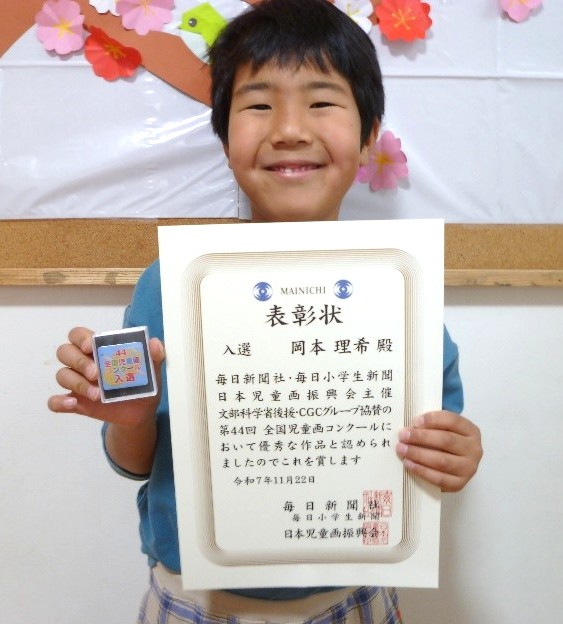 MAINICHI
表彰状
入選 岡本 理希 殿
毎日新聞社・毎日小学生新聞
日本児童画振興会主催
文部科学省後援・CGCグループ協賛の
第44回 全国児童画コンクールに
おいて優秀な作品と認められ
ましたのでこれを賞します
令和7年11月22日
毎日新聞社
毎日小学生新聞
日本児童画振興会
44
全国児童画
コンクール
入選